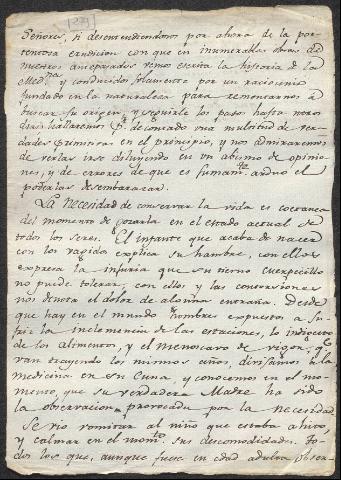 Señores, si desentendiendonos por ahora de la por-
tentosa erudicion con que en inumerables obras de
nuestros antepasados vemos escrita la historia de la
Med.na y conducidos solamente por un raciocinio
fundado en la naturaleza para remontarnos á
buscar su origen, y seguirle los pasos hasta noso
tros hallaremos p.r de contado una multitud de ver-
dades primeras en el principio, y nos admiraremos
de verlas irse diluyendo en un abismo de opinio
nes, y de errores de que es sumam.te arduo el
poderlas desembarazar.
La necesidad de conservar la vida es coetanea
del momento de gozarla en el estado actual de
todos los seres. El infante que acaba de nacer
con los vagidos explica su hambre, con ellos
expresa la injuria que su tierno cuerpecillo
no puede tolerar, con ellos y las convulsiones
nos denota el dolor de alguna entraña. Desde
que hay en el mundo hombres expuestos a su-
frir la inclemencia de las estaciones, lo indigesto
de los alimentos, y el menoscavo de vigor, q.e
van trayendo los mismos años, divisamos á la
medicina en su Cuna, y conocemos en el mo-
mento, que su verdadera Madre ha sido
la observacion provocada por la necesidad
Se vio vomitar al niño que estaba ahito,
y calmar en el mom.to sus descomodidades. To-
dos los que, aunque fuese en edad adulta obser-